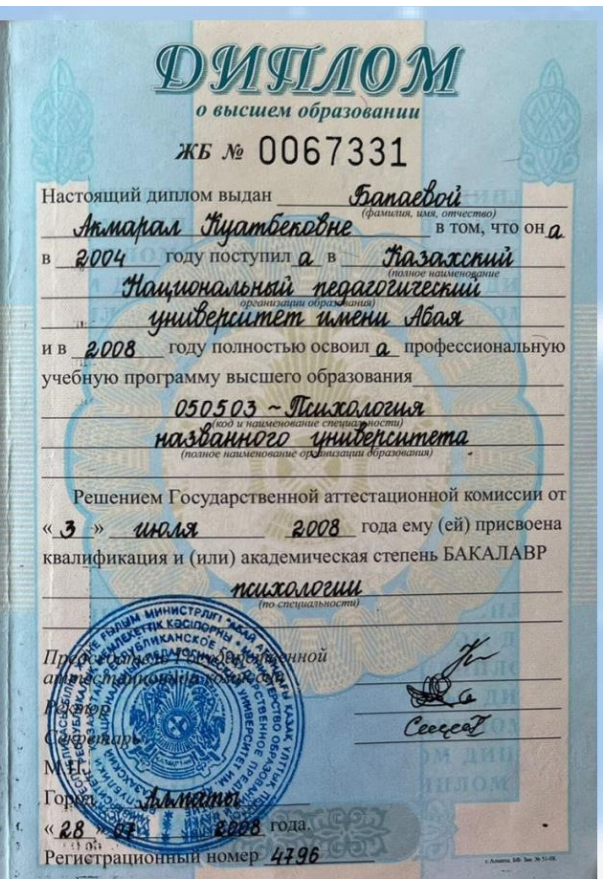 ДИПЛОМ
о высшем образовании
ЖБ № 0067331
Настоящий диплом выдан Бапаевой
(фамилия, имя, отчество)
Акмарал Куатбековне в том, что она
в 2004 году поступил а в Казахский
(полное наименование
Национальный педагогический
организации образования)
университет имени Абая
и в 2008 году полностью освоил а профессиональную
учебную программу высшего образования
050503 ~ Психология
(код и наименование специальности)
названного университета
(полное наименование организации образования)
Решением Государственной аттестационной комиссии от
« 3 » июля 2008 года ему (ей) присвоена
квалификация и (или) академическая степень БАКАЛАВР
психологии
(по специальности)
Председатель Государственной
аттестационной комиссии
Ректор
Секретарь
М.П.
Город Алматы
« 28 » 07 2008 года.
Регистрационный номер 4796